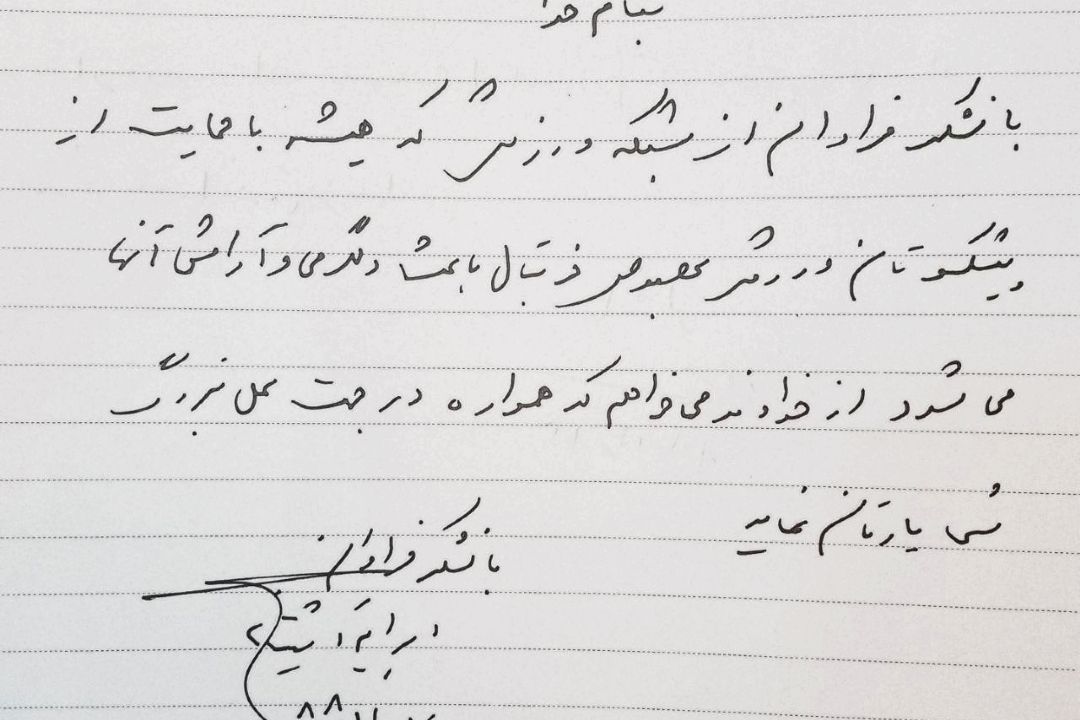 بنام خدا
با تشکر فراوان از شبکه ورزش که همیشه با حمایت از
پیشکسوتان ورزش بخصوص فوتبال باعث دلگرمی و آرامش آنها
می شود از خداوند می خواهم که همواره در جهت عمل بزرگ
شما یارتان نماید
با تشکر فراوان
۸۸